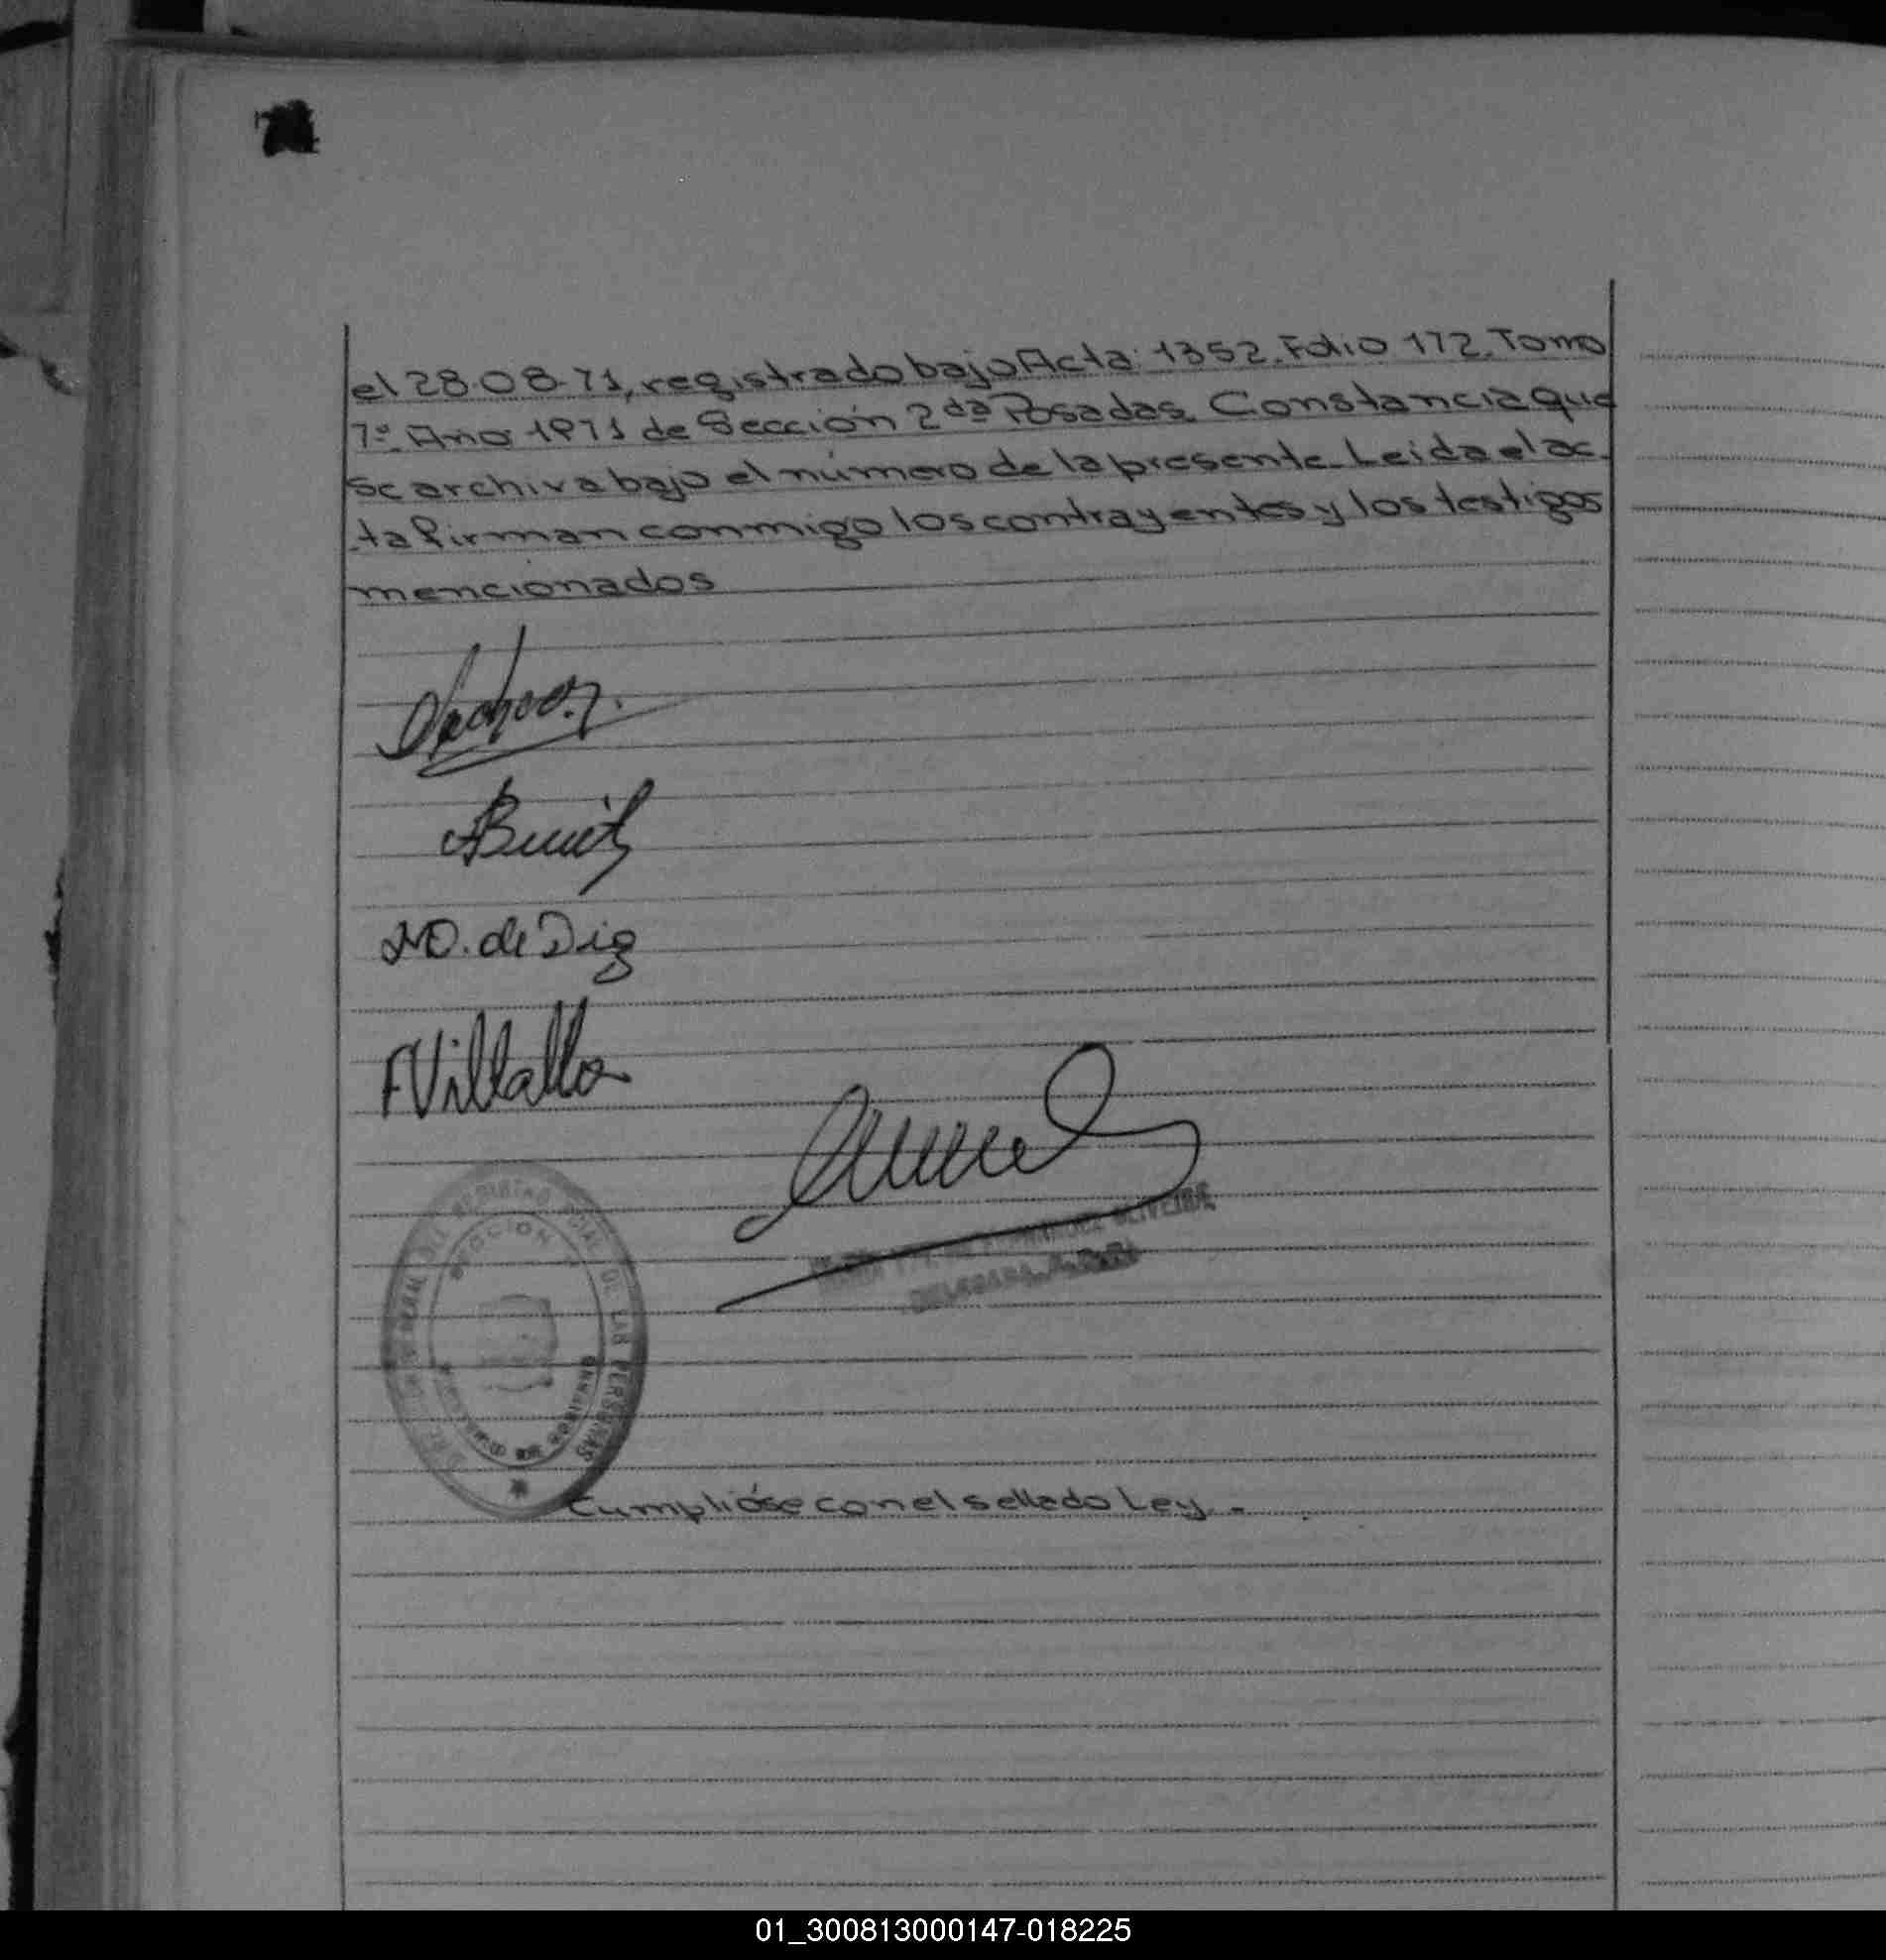 el 28.08.71, registrado bajo Acta: 1352. Folio 172. Tomo
7º. Año 1971 de Sección 2da Posadas. Constancia que
se archiva bajo el número de la presente. Leida el ac
ta firman conmigo los contrayentes y los testigos
mencionados
ABenit
MD. de Diz
FVillalba
REGISTRO PROVINCIAL DE LAS PERSONAS
SECCION
OLIVEIRA
DELEGADA
Cumplióse con el sellado Ley. -
01_300813000147-018225